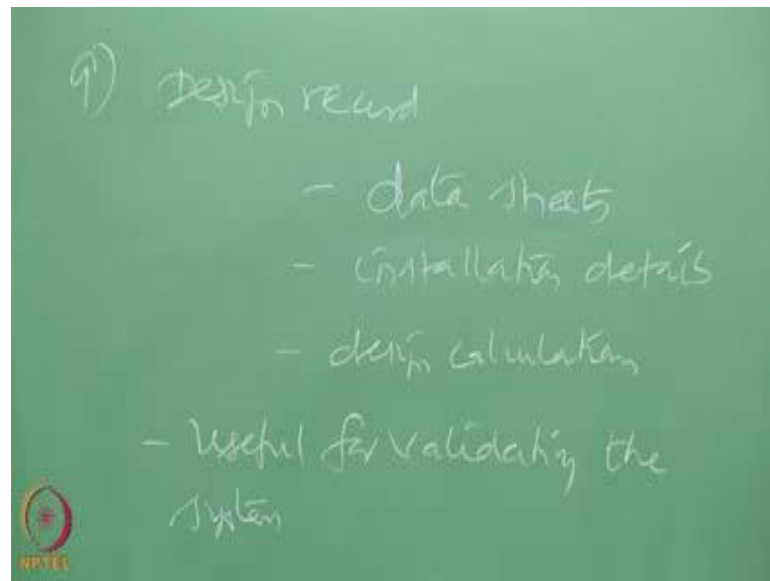 9) Design record
- data sheets
- installation details
- design calculation
- Useful for validating the
system
NPTEL